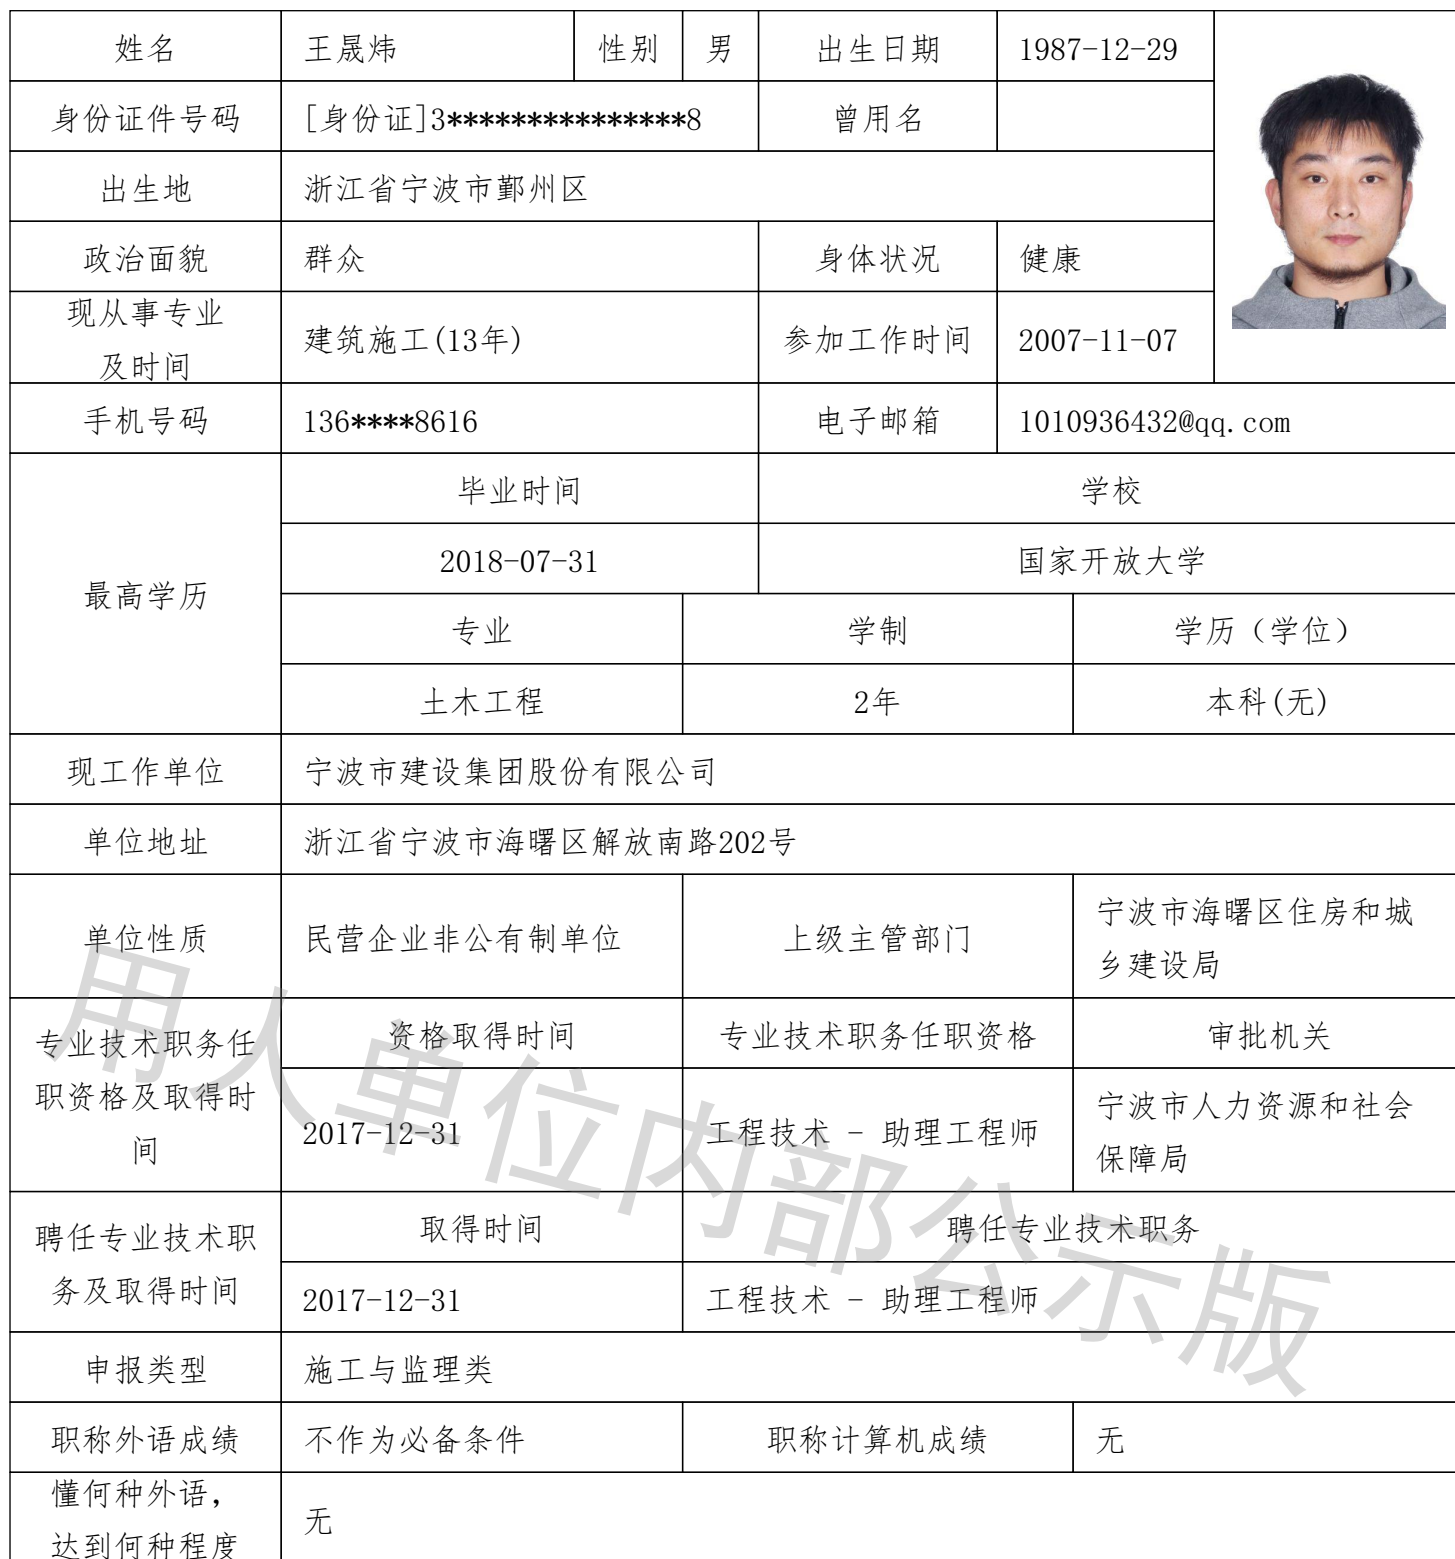 姓名 王晟炜 性别 男 出生日期 1987-12-29
身份证件号码 [身份证]3***************8 曾用名
出生地 浙江省宁波市鄞州区
政治面貌 群众 身体状况 健康
现从事专业
及时间
建筑施工(13年) 参加工作时间 2007-11-07
手机号码 136****8616 电子邮箱 1010936432@qq.com
最高学历
毕业时间 学校
2018-07-31 国家开放大学
专业 学制 学历（学位）
土木工程 2年 本科(无)
现工作单位 宁波市建设集团股份有限公司
单位地址 浙江省宁波市海曙区解放南路202号
单位性质 民营企业非公有制单位 上级主管部门
宁波市海曙区住房和城
乡建设局
专业技术职务任
职资格及取得时
间
资格取得时间 专业技术职务任职资格 审批机关
2017-12-31 工程技术 - 助理工程师
宁波市人力资源和社会
保障局
聘任专业技术职
务及取得时间
取得时间 聘任专业技术职务
2017-12-31 工程技术 - 助理工程师
申报类型 施工与监理类
职称外语成绩 不作为必备条件 职称计算机成绩 无
懂何种外语，
达到何种程度
无
用人单位内部公示版